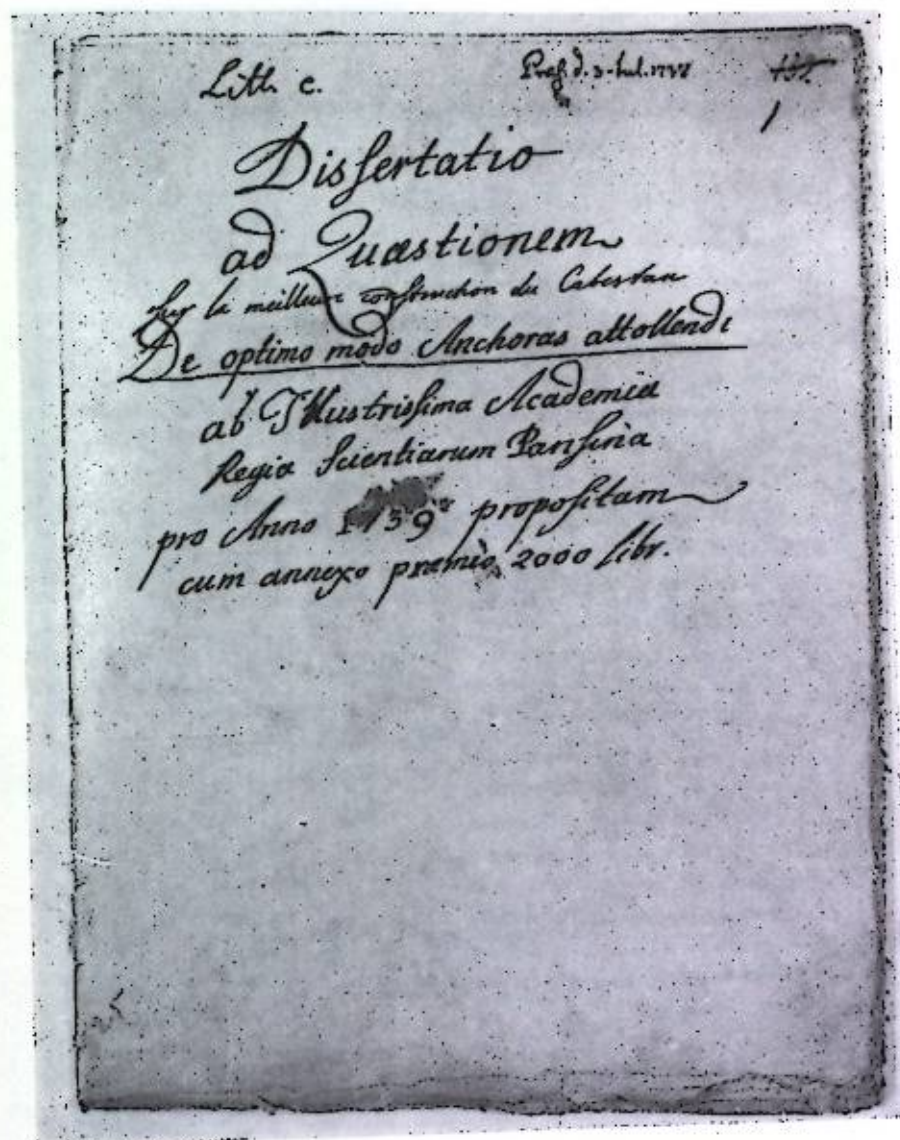 Litt. c.
Præs. d. 3. Iul. 1737
1
Dissertatio
ad Quæstionem
sur la meilleure construction du Cabestan
De optimo modo Anchoras attollendi
ab Illustrissima Academia
Regia Scientiarum Parisina
pro Anno 1739 propositam
cum annexo præmio 2000 libr.